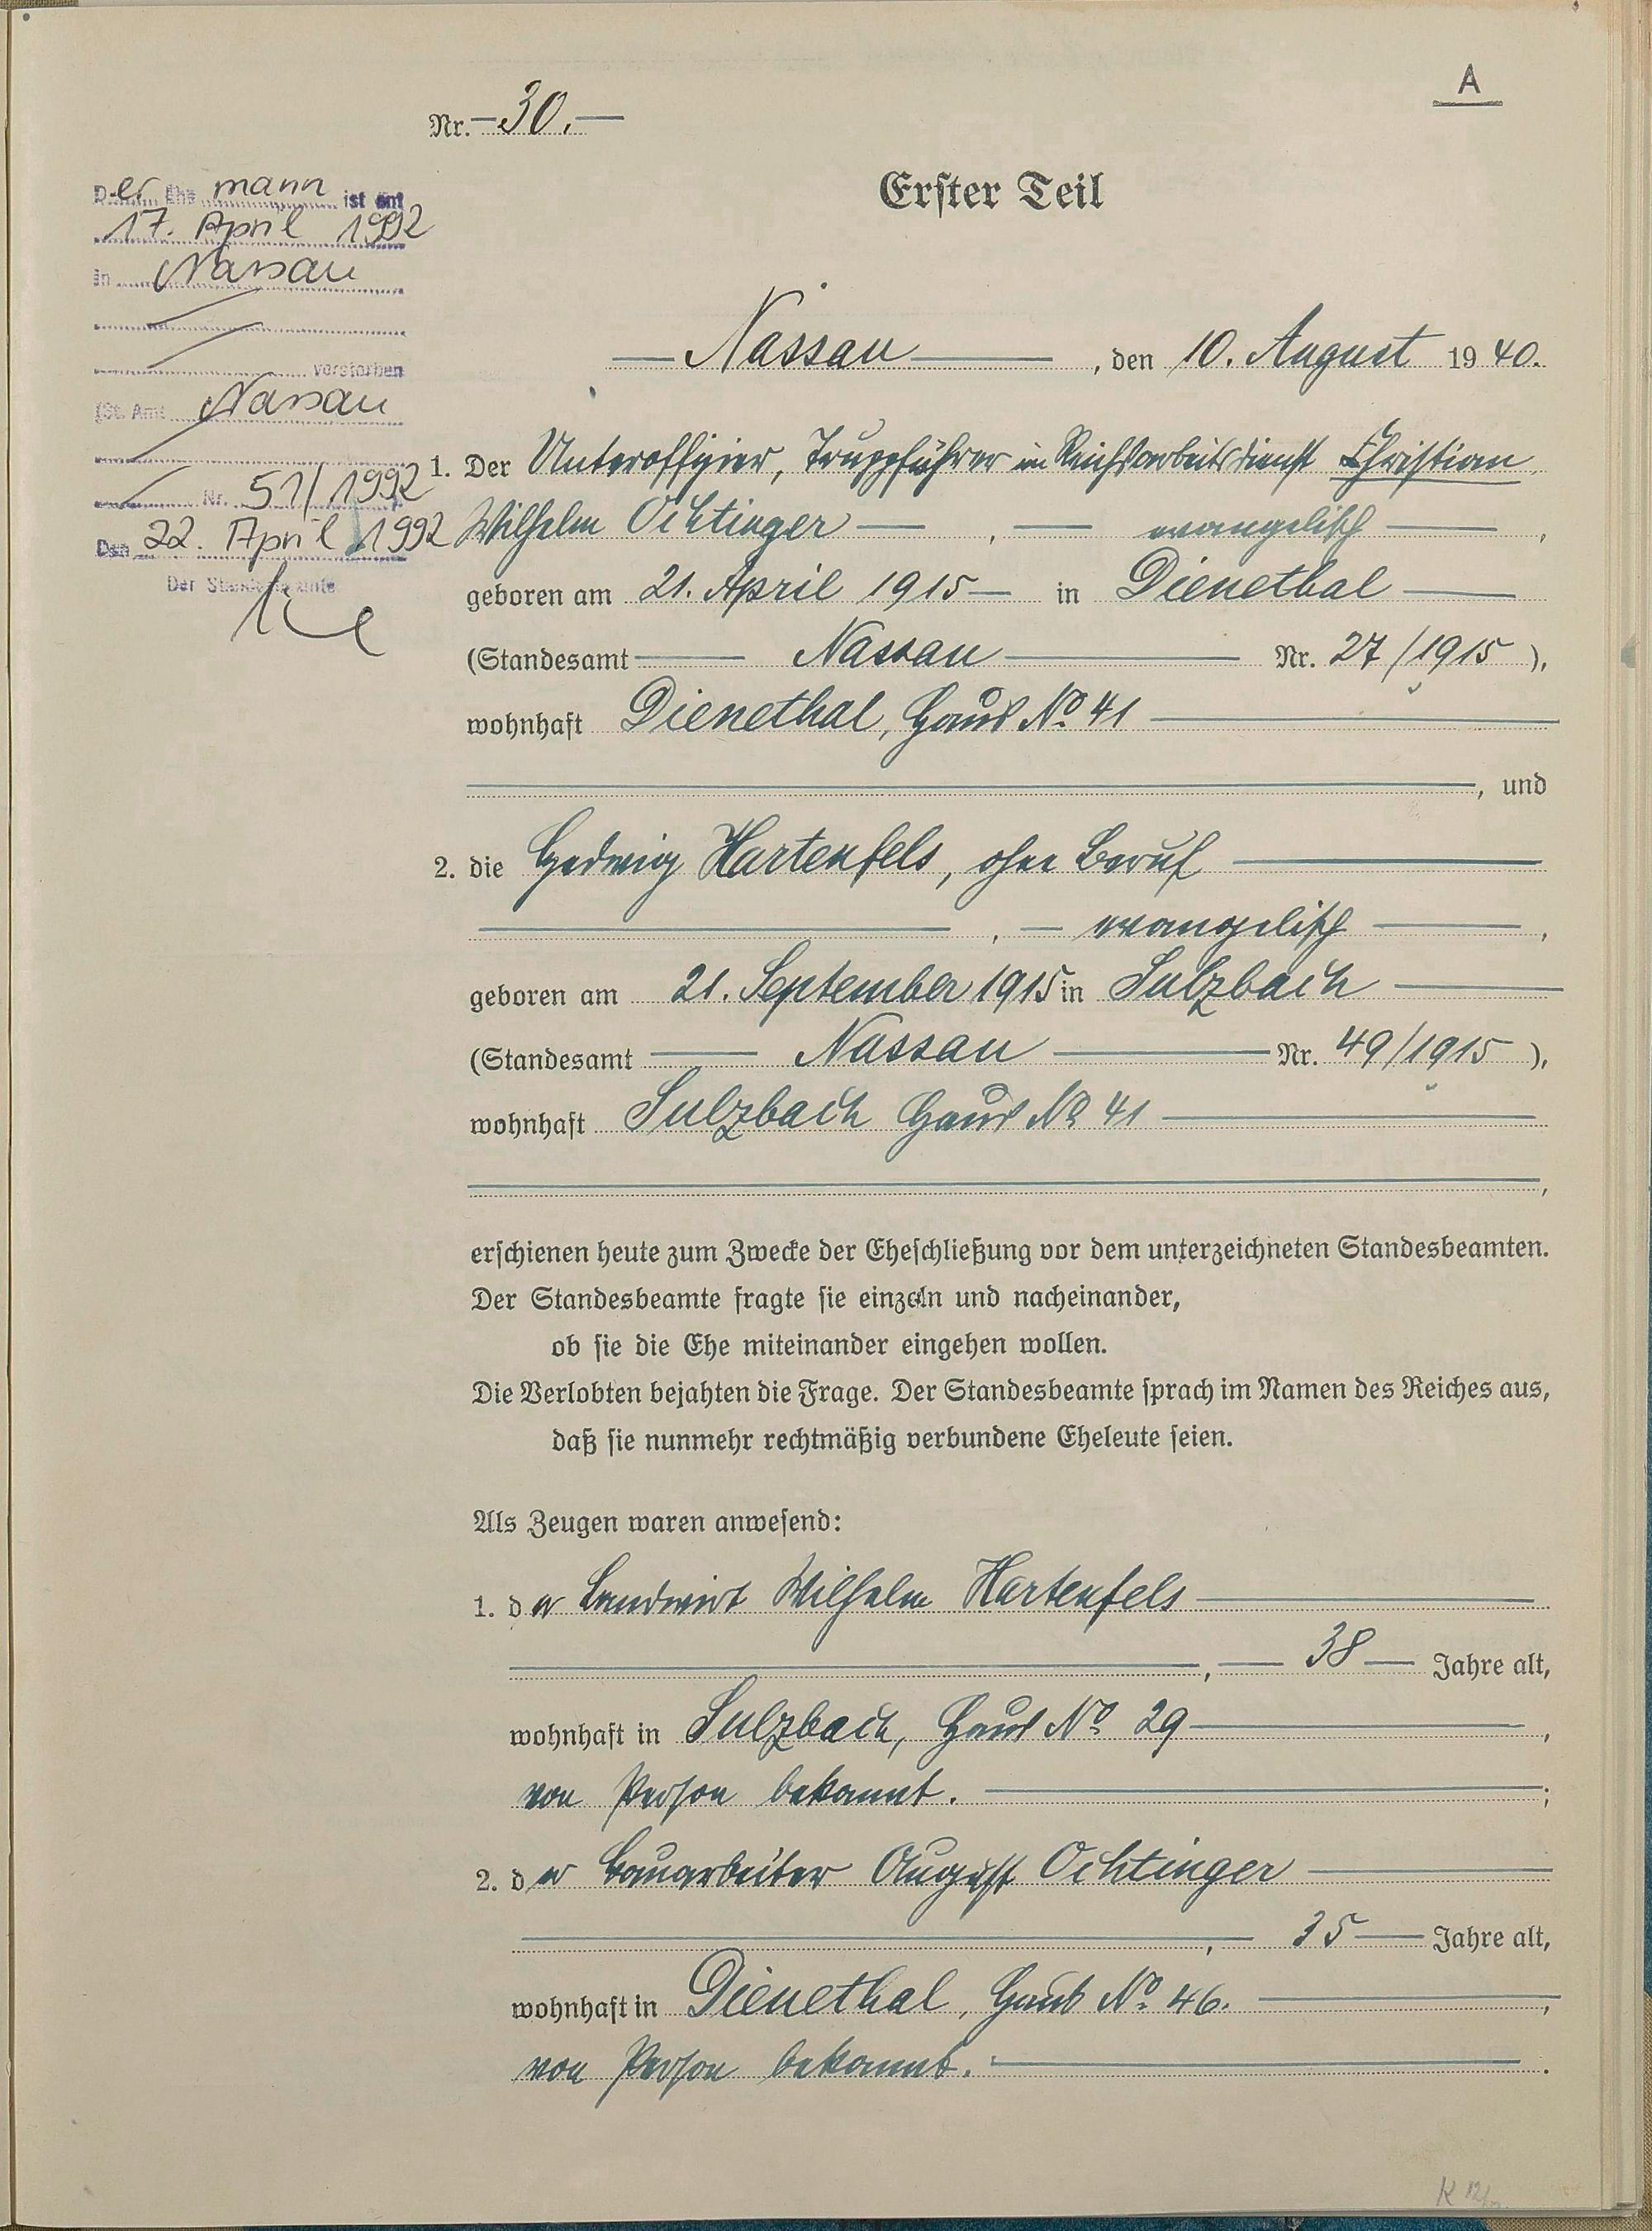 A
Nr. 30.
Erster Teil
Der Ehe mann ist am
17. April 1992
in Nassau
verstorben
(St. Amt Nassau
Nr. 51/1992
Den 22. April 1992
Der Standesbeamte
Nassau, den 10. August 1940.
1. Der Unteroffizier, Truppführer im Reichsarbeitsdienst Christian
Wilhelm Ochtinger, evangelisch,
geboren am 21. April 1915 in Dienethal
(Standesamt Nassau Nr. 27/1915),
wohnhaft Dienethal, Haus No 41
, und
2. die Hedwig Hartenfels, ohne Beruf
, evangelisch,
geboren am 21. September 1915 in Sulzbach
(Standesamt Nassau Nr. 49/1915),
wohnhaft Sulzbach Haus No 41
,
erschienen heute zum Zwecke der Eheschließung vor dem unterzeichneten Standesbeamten.
Der Standesbeamte fragte sie einzeln und nacheinander,
ob sie die Ehe miteinander eingehen wollen.
Die Verlobten bejahten die Frage. Der Standesbeamte sprach im Namen des Reiches aus,
daß sie nunmehr rechtmäßig verbundene Eheleute seien.
Als Zeugen waren anwesend:
1. der Landwirt Wilhelm Hartenfels
, 38 Jahre alt,
wohnhaft in Sulzbach, Haus No 29,
von Person bekannt. ;
2. der Bauarbeiter August Ochtinger
, 35 Jahre alt,
wohnhaft in Dienethal, Haus No 46. ,
von Person bekannt. .